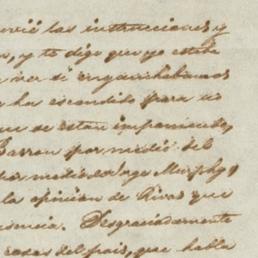 las instrucciones y
, y te digo que yo estaba
ver si enganchabamos
ha escondido para no
que de estan impaciente,
Barron por medio del
por medio de Jago Murphy y
la opinion de Rivas que
. Desgraciadamente
cosas del pais, que habla